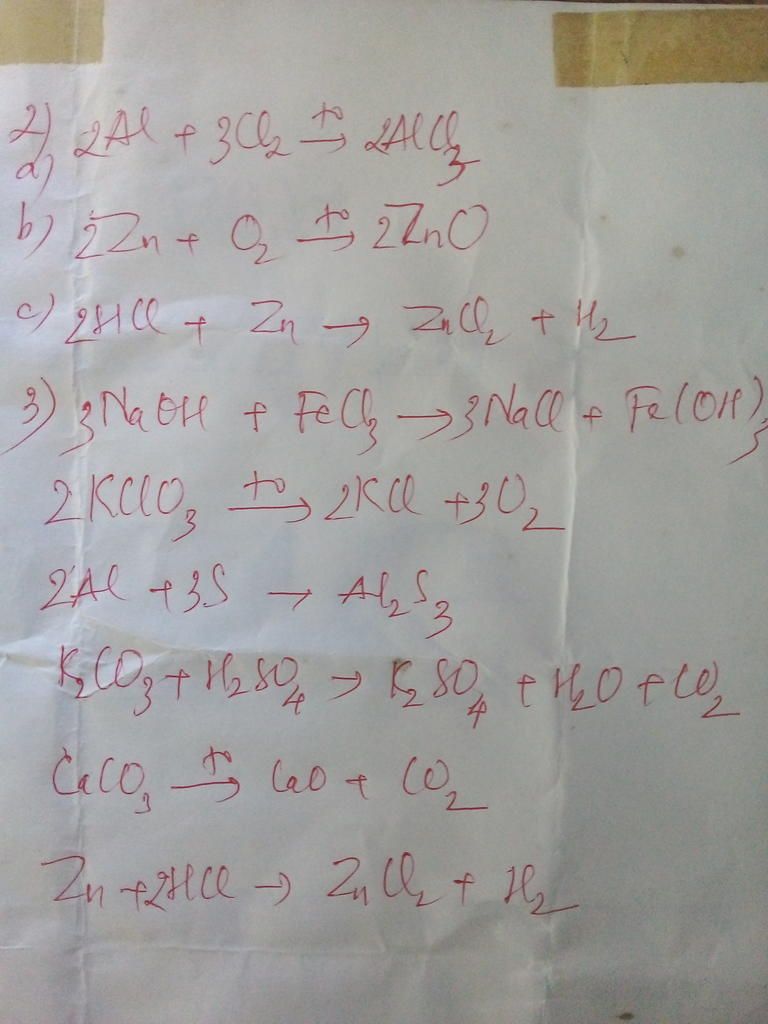 2)
a) 2Al + 3Cl₂ →(t⁰) 2AlCl₃
b) 2Zn + O₂ →(t⁰) 2ZnO
c) 2HCl + Zn → ZnCl₂ + H₂
3) 3NaOH + FeCl₃ → 3NaCl + Fe(OH)₃
2KClO₃ →(t⁰) 2KCl + 3O₂
2Al + 3S → Al₂S₃
K₂CO₃ + H₂SO₄ → K₂SO₄ + H₂O + CO₂
CaCO₃ →(t⁰) CaO + CO₂
Zn + 2HCl → ZnCl₂ + H₂